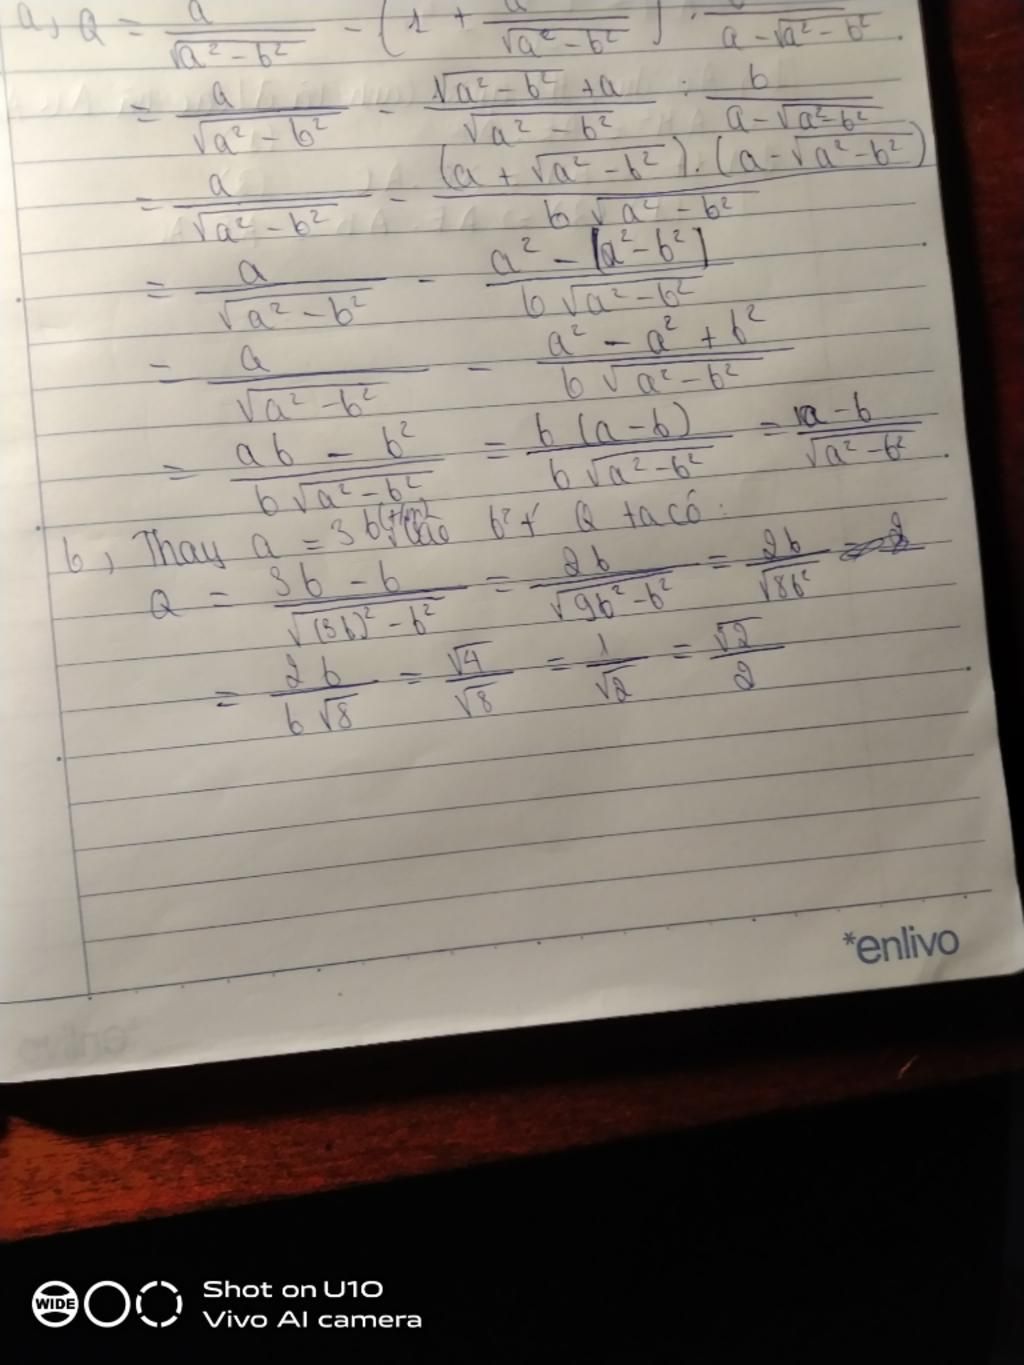 a, Q = a/√(a² - b²) - (1 + a/√(a² - b²)) : b/(a - √(a² - b²)).
= a/√(a² - b²) - (√(a² - b²) + a)/√(a² - b²) : b/(a - √(a² - b²))
= a/√(a² - b²) - (a + √(a² - b²)).(a - √(a² - b²))/b√(a² - b²)
= a/√(a² - b²) - (a² - (a² - b²))/b√(a² - b²)
= a/√(a² - b²) - (a² - a² + b²)/b√(a² - b²)
= (ab - b²)/b√(a² - b²) = b(a - b)/b√(a² - b²) = (a - b)/√(a² - b²)
b, Thay a = 3b Q ta có:
Q = (3b - b)/√((3b)² - b²) = 2b/√(9b² - b²) = 2b/√(8b²)
= 2b/b√8 = √4/√8 = 1/√2 = √2/2
*enlivo
WIDE
Shot on U10
Vivo AI camera